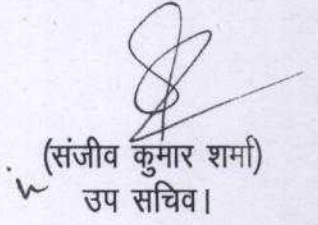 (संजीव कुमार शर्मा)
उप सचिव।